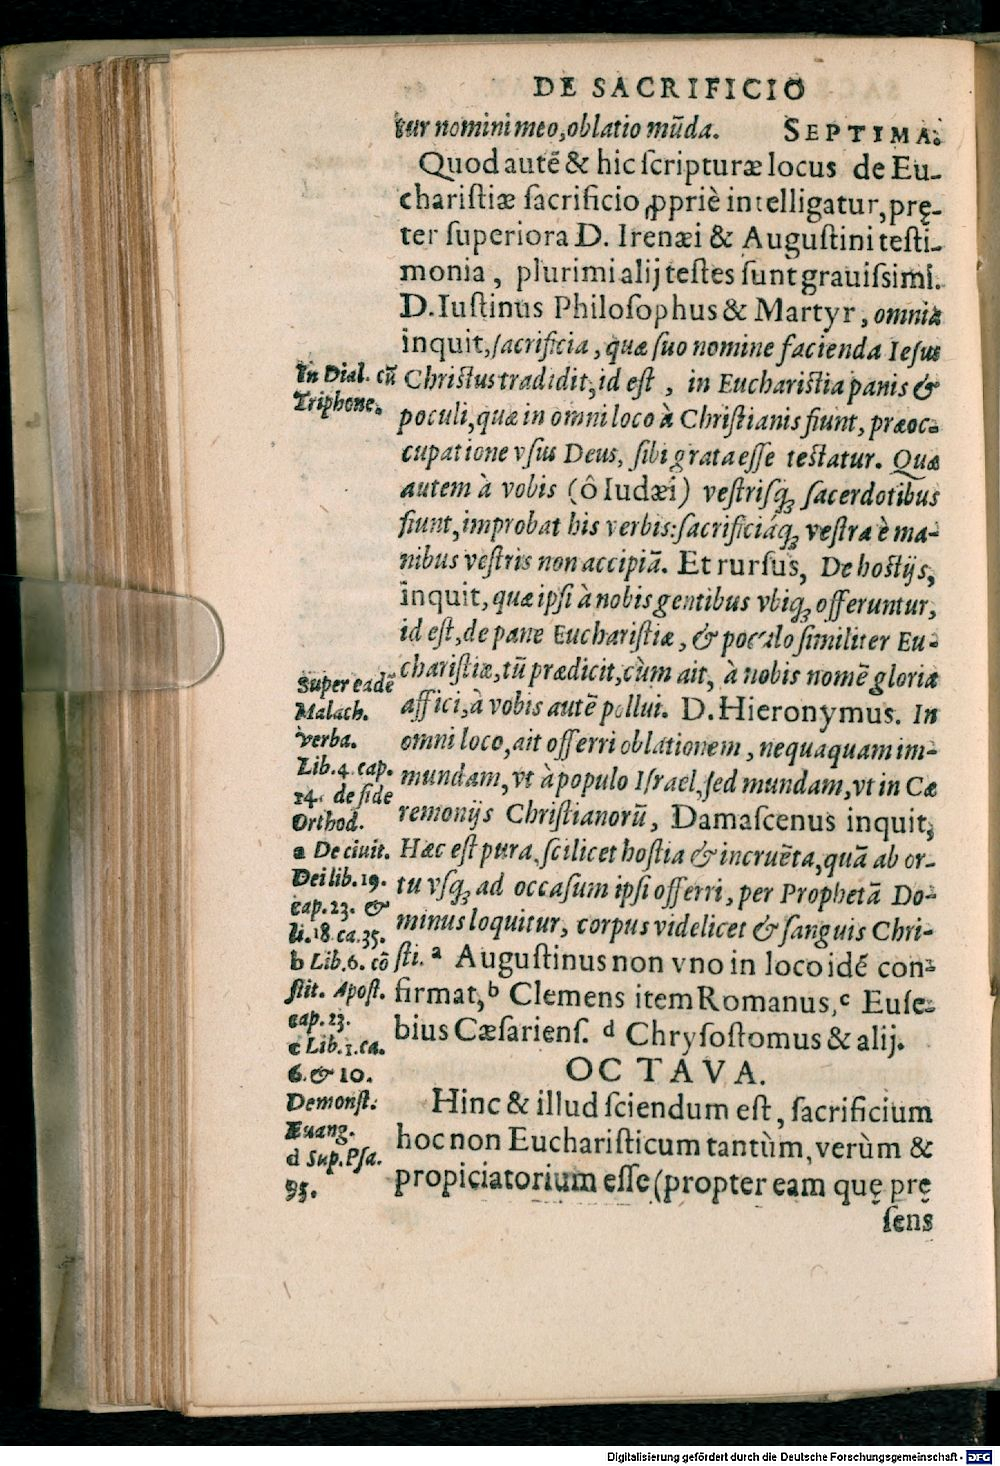 DE SACRIFICIO
tur nomini meo, oblatio mūda. SEPTIMA.
Quod autē & hic ſcripturæ locus de Eu-
chariſtiæ ſacrificio ꝓpriè intelligatur, prę-
ter ſuperiora D. Irenæi & Auguſtini teſti-
monia, plurimi alij teſtes ſunt grauiſsimi.
D. Iuſtinus Philoſophus & Martyr, omnia
inquit, ſacrificia, quæ ſuo nomine facienda Ieſus
Chriſtus tradidit, id eſt, in Euchariſtia panis &
poculi, quæ in omni loco à Chriſtianis fiunt, præoc-
cupatione vſus Deus, ſibi grata eſſe teſtatur. Quæ
autem à vobis (ô Iudæi) veſtriſq́; ſacerdotibus
fiunt, improbat his verbis: ſacrificiáq́; veſtra è ma-
nibus veſtris non accipiā. Et rurſus, De hoſtijs,
inquit, quæ ipſi à nobis gentibus vbiq́; offeruntur,
id eſt, de pane Euchariſtiæ, & poculo ſimiliter Eu-
chariſtiæ, tū prædicit, cùm ait, à nobis nomē gloria
affici, à vobis autē pollui. D. Hieronymus. In
omni loco, ait offerri oblationem, nequaquam im-
mundam, vt à populo Iſrael, ſed mundam, vt in Cæ
remonijs Chriſtianorū, Damaſcenus inquit,
Hæc eſt pura, ſcilicet hoſtia & incruēta, quā ab or-
tu vſq́; ad occaſum ipſi offerri, per Prophetā Do-
minus loquitur, corpus videlicet & ſanguis Chri-
ſti. a Auguſtinus non vno in loco idē con-
firmat, b Clemens item Romanus, c Euſe-
bius Cæſarienſ. d Chryſoſtomus & alij.
OCTAVA.
Hinc & illud ſciendum eſt, ſacrificium
hoc non Euchariſticum tantùm, verùm &
propiciatorium eſſe (propter eam quę prę
ſens
In Dial. cū
Triphone.
Super eadē
Malach.
verba.
Lib. 4. cap.
14. de fide
Orthod.
a De ciuit.
Dei lib. 19.
cap. 23. &
li. 18. ca. 35.
b Lib. 6. cō
ſtit. Apoſt.
cap. 23.
c Lib. 1. ca.
6. & 10.
Demonſt.
Euang.
d Sup. Pſa.
95.
Digitalisierung gefördert durch die Deutsche Forschungsgemeinschaft - DFG